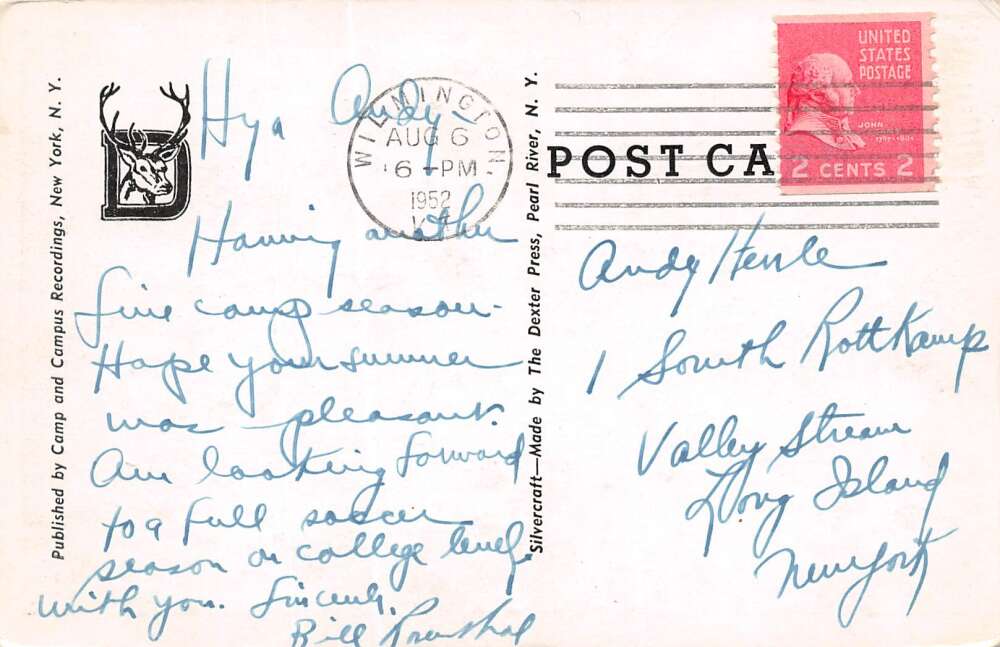 Published by Camp and Campus Recordings, New York, N. Y.
D
Hya Andy -
Having another
fine camp season -
Hope your summer
was pleasant.
Am looking forward
to a full soccer
season on college level
with you. Sincerely,
Bill
WILMINGTON,
AUG 6
6 - PM
1952
Silvercraft—Made by The Dexter Press, Pearl River, N. Y.
POST CA
UNITED
STATES
POSTAGE
JOHN
2 CENTS 2
Andy
1 South Rottkamp
Valley Stream
Long Island
New York